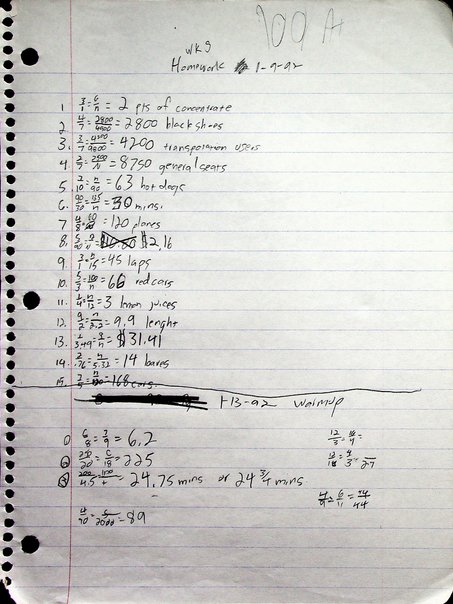 100 A+
WK9
Homework 1-9-92
1. 3/1 = 6/n = 2 pts of concentrate
2. 4/7 = 2800/4900 = 2800 black shoes
3. 3/7 = 4200/9800 = 4200 transportation users
4. 2/7 = 2500/n = 8750 general seats
5. 7/10 = n/90 = 63 hot dogs
6. 90/20 = 135/n = 30 mins.
7. 4/8 = 60/ = 120 planes
8. 5/90 = 9/n = $2.16
9. 3/1 = n/15 = 45 laps
10. 5/3 = 100/n = 66 red cars
11. 1/4 = n/12 = 3 lemon juices
12. 9/2 = n/2.2 = 9.9 lenght
13. 1/3.49 = 9/n = $31.41
14. 2/.76 = n/5.32 = 14 bares
15. 168 cars
1-13-92 warmup
6/8 = 7/9 = 6,2
/20 = /18 = 225
200/45 = = 24.75 mins or 24 3/4 mins
4/90 = /2000 = 89
12/3 = 16/
12/18 = /3 = /27
4/9 = 6/11 = /44